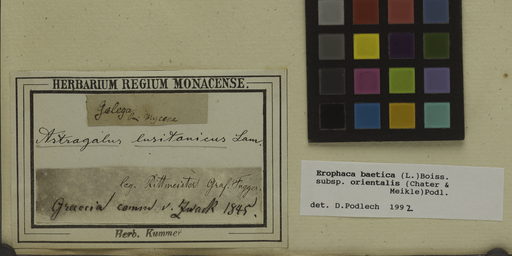 HERBARIUM REGIUM MONACENSE.
Galega
Astragalus lusitanicus Lam.
leg. Rittmeister Graf Fugger
Graecia comm. v. Zwack 1845.
Herb. Kummer
Erophaca baetica (L.)Boiss.
subsp. orientalis (Chater &
Meikle)Podl.
det. D.Podlech 1992